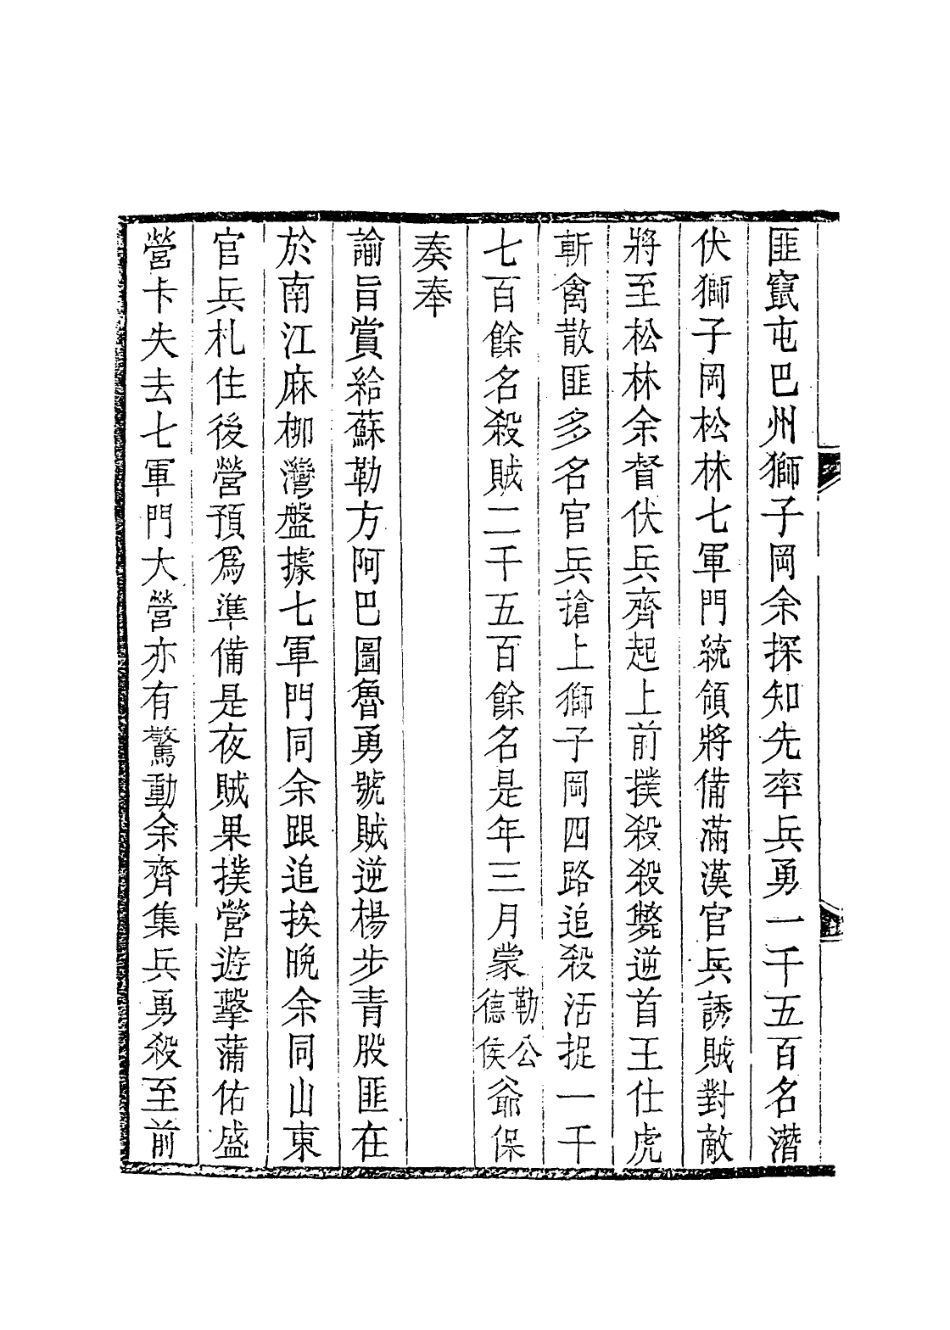 匪竄屯巴州獅子岡余探知先率兵勇一千五百名潛
伏獅子岡松林七軍門統領將備滿漢官兵誘賊對敵
將至松林余督伏兵齊起上前撲殺殺斃逆首王仕虎
斬禽散匪多名官兵搶上獅子岡四路追殺活捉一千
七百餘名殺賊二千五百餘名是年三月蒙勒公德侯爺保
奏奉
諭旨賞給蘇勒方阿巴圖魯勇號賊逆楊步青股匪在
於南江麻柳灣盤據七軍門同余跟追挨晚余同山東
官兵札住後營預為準備是夜賊果撲營遊擊蒲佑盛
營卡失去七軍門大營亦有驚動余齊集兵勇殺至前